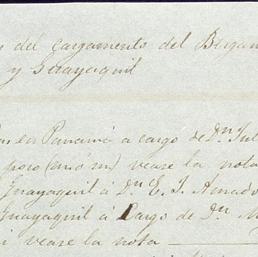 del cargamento del Bergan
y Guayaquil
Panamá a cargo de Dn Jul
poso (mi ó m) vease la nota
Guayaquil á Dn E. J. Amado
Guayaquil á Cargo de Dn M
i vease la nota